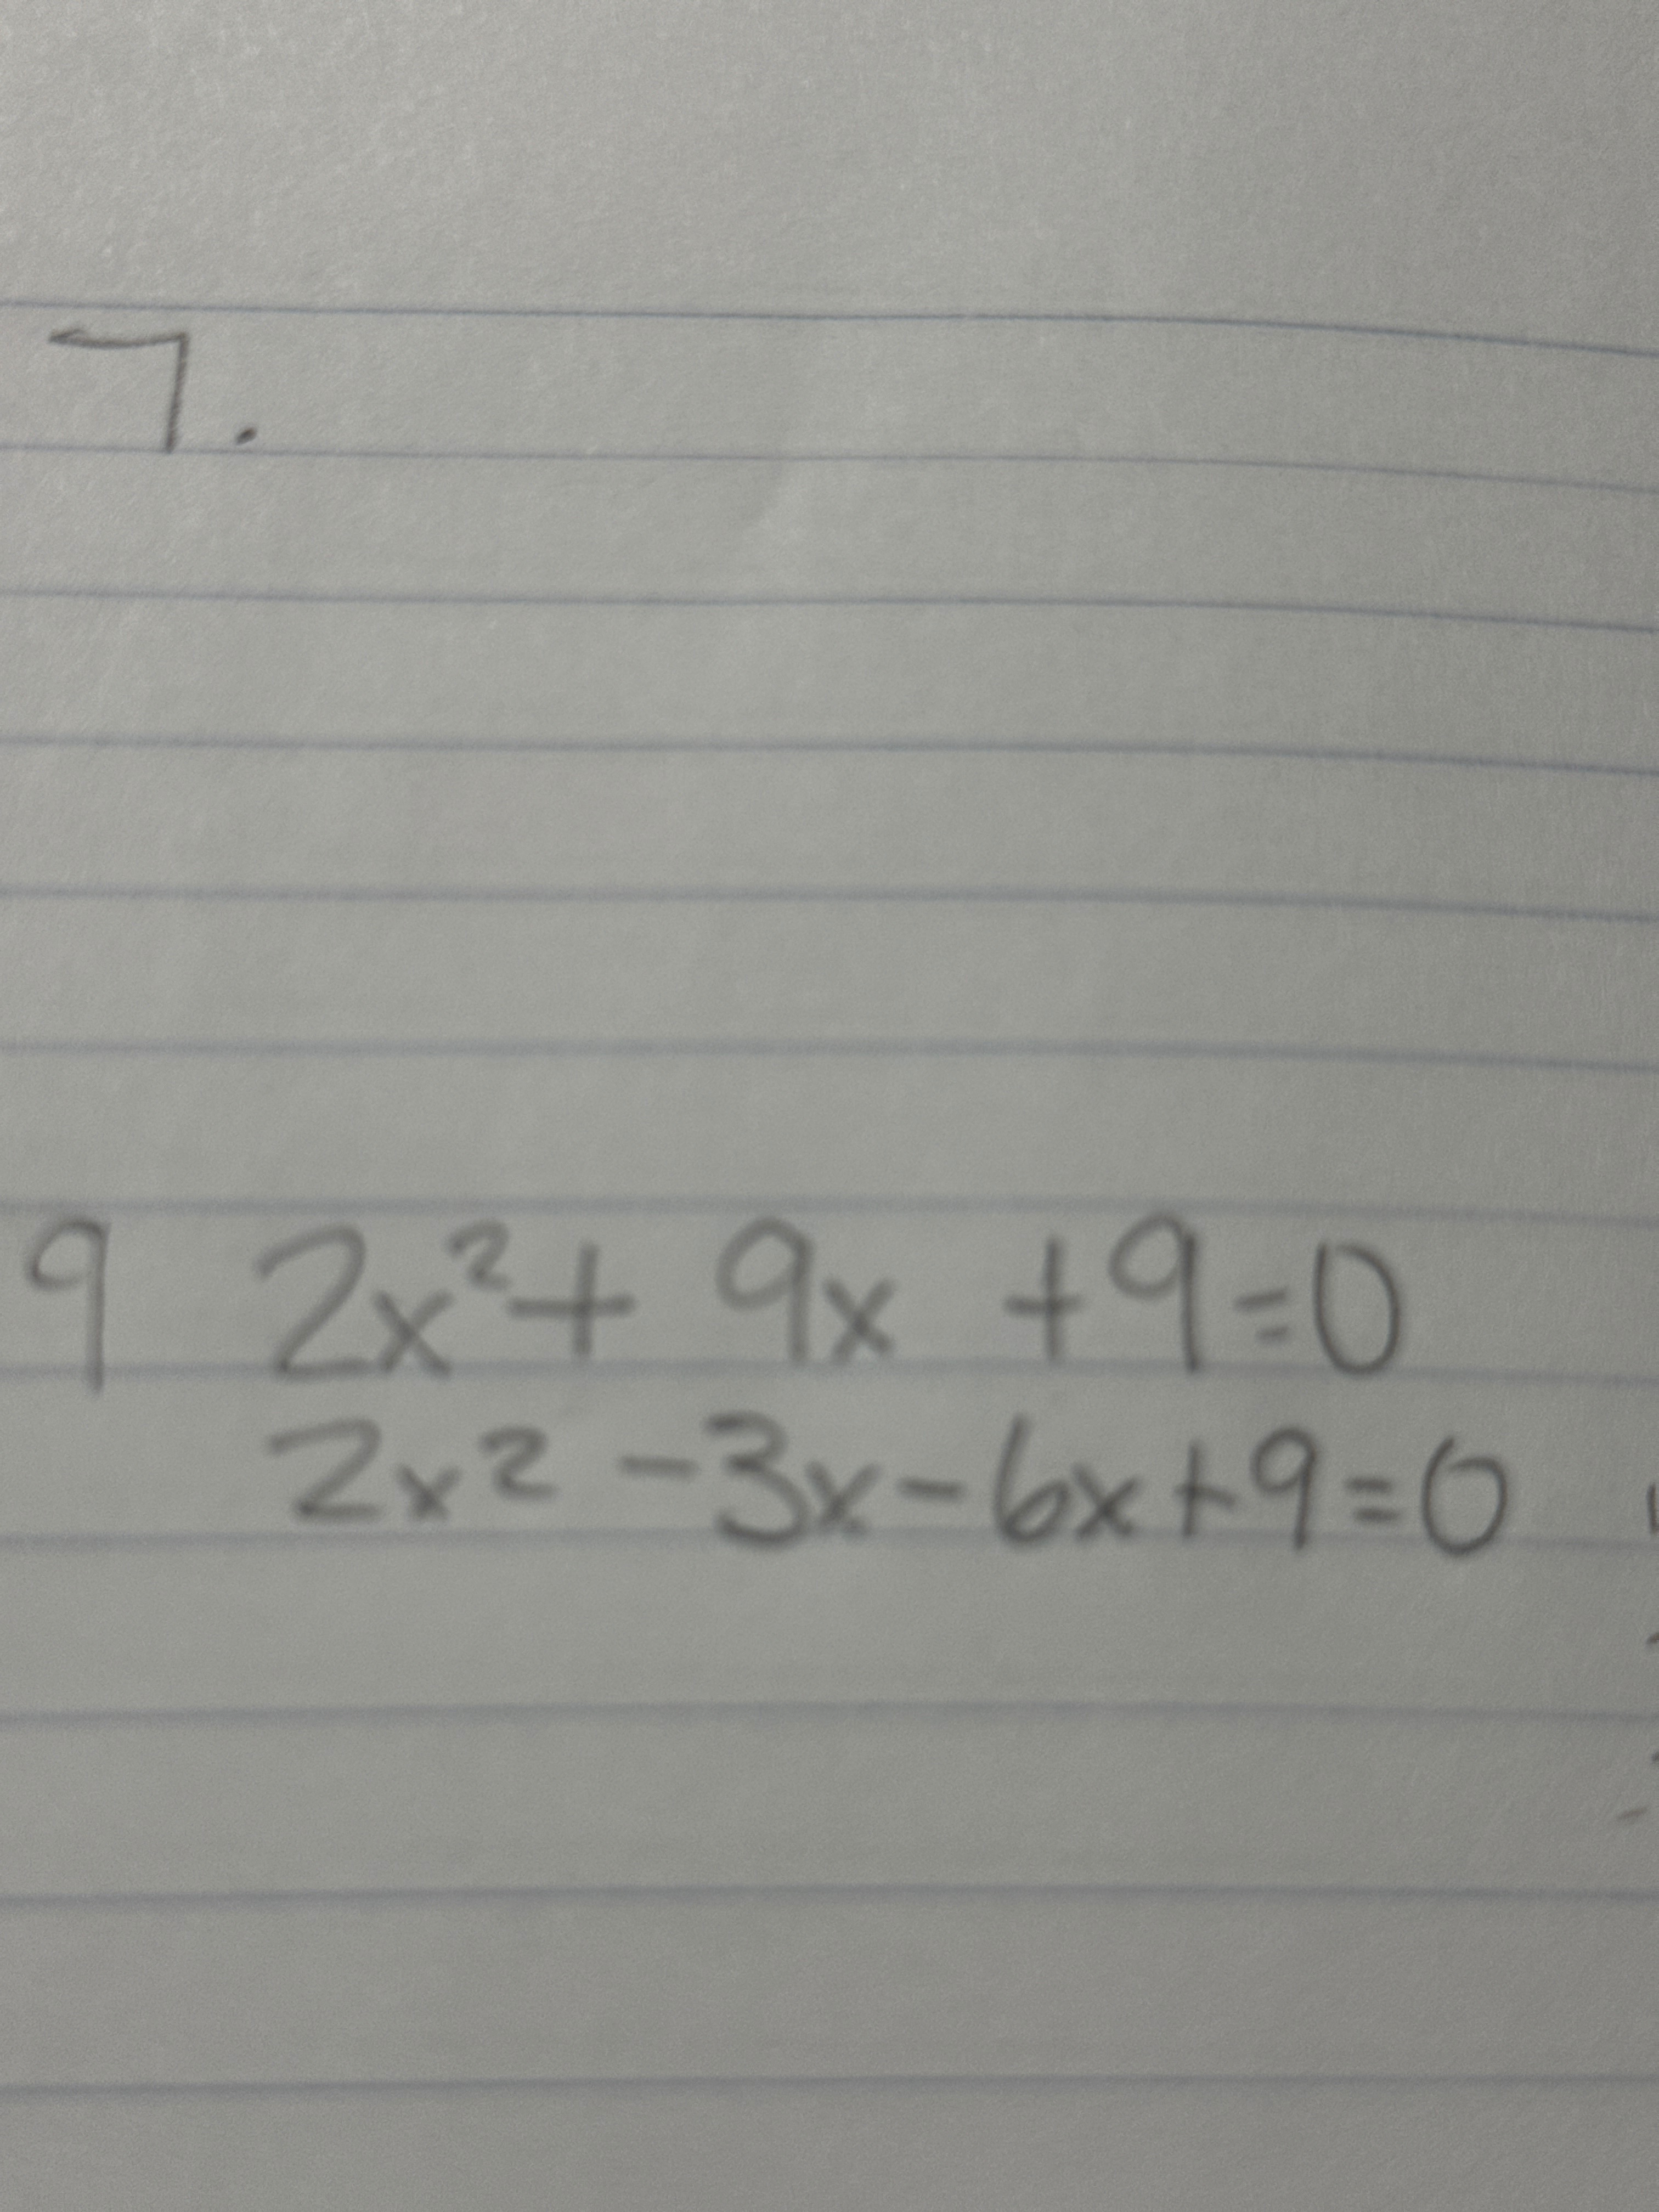 7.
9 2x²+ 9x +9=0
2x² -3x-6x+9=0